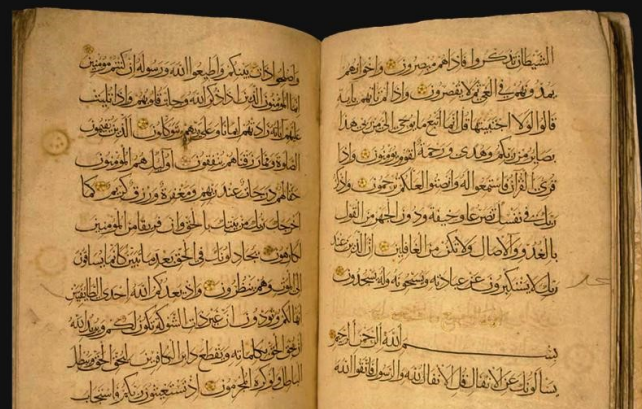 الشيطان تذكروا فاذا هم مبصرون واخوانهم
يمدونهم في الغي ثم لا يقصرون واذا لم تأتهم باية
قالوا لولا اجتبيتها قل انما اتبع ما يوحى الي من ربي هذا
بصاير من ربكم وهدى ورحمة لقوم يؤمنون واذا
قرئ القرآن فاستمعوا له وانصتوا لعلكم ترحمون واذكر
ربك في نفسك تضرعا وخيفة ودون الجهر من القول
بالغدو والاصال ولا تكن من الغافلين ان الذين عند
ربك لا يستكبرون عن عبادته ويسبحونه وله يسجدون
بسم الله الرحمن الرحيم
يسألونك عن الانفال قل الانفال لله والرسول فاتقوا الله
واصلحوا ذات بينكم واطيعوا الله ورسوله ان كنتم مؤمنين
انما المؤمنون الذين اذا ذكر الله وجلت قلوبهم واذا تليت
عليهم آياته زادتهم ايمانا وعلى ربهم يتوكلون الذين يقيمون
الصلوة ومما رزقناهم ينفقون اولئك هم المؤمنون
حقا لهم درجات عند ربهم ومغفرة ورزق كريم كما
اخرجك ربك من بيتك بالحق وان فريقا من المؤمنين
لكارهون يجادلونك في الحق بعد ما تبين كأنما يساقون
الى الموت وهم ينظرون واذ يعدكم الله احدى الطائفتين
انها لكم وتودون ان غير ذات الشوكة تكون لكم ويريد الله
ان يحق الحق بكلماته ويقطع دابر الكافرين ليحق الحق ويبطل
الباطل ولو كره المجرمون اذ تستغيثون ربكم فاستجاب